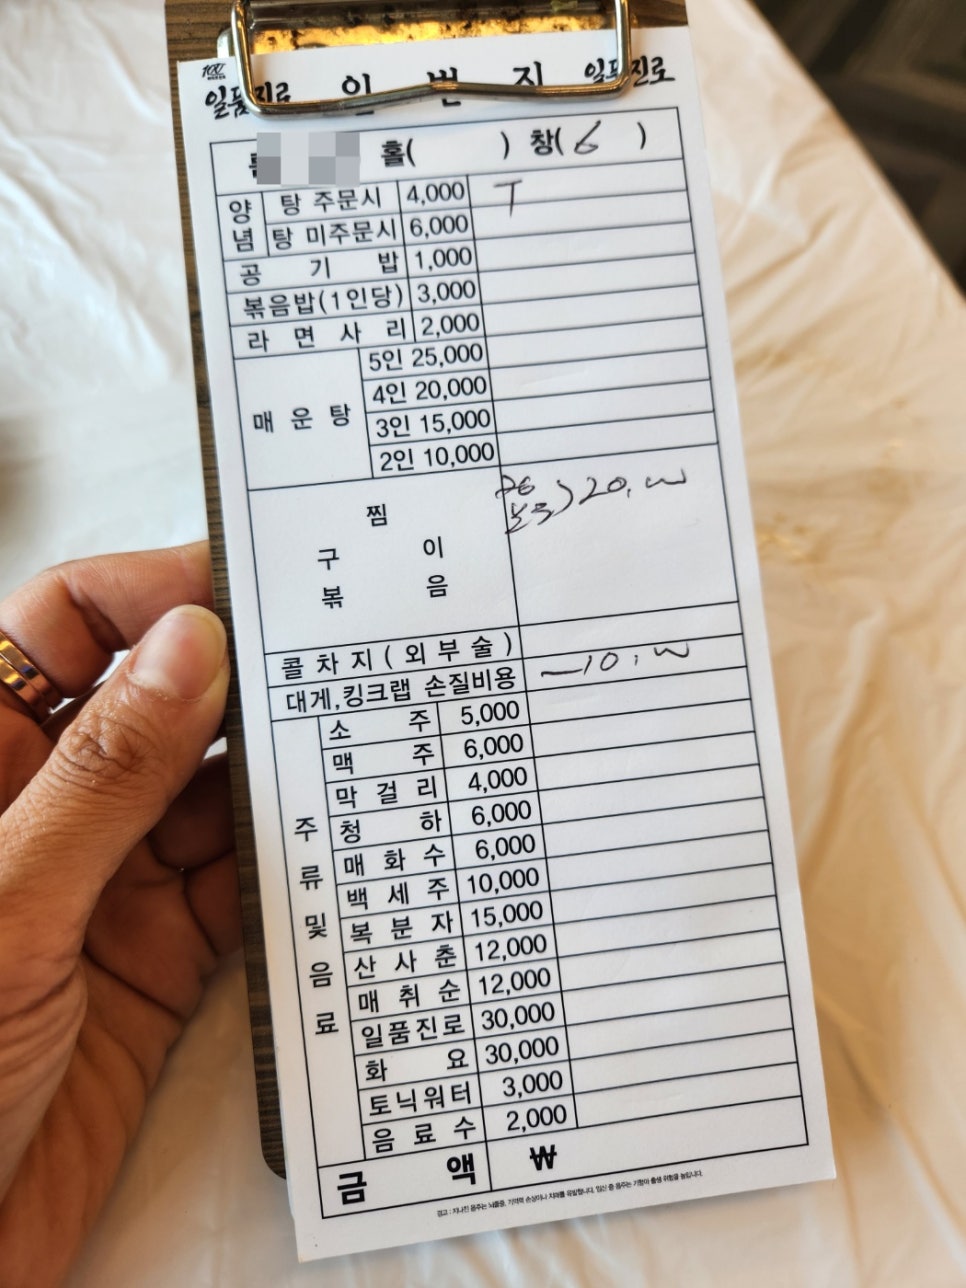 일품진로 인 번 지 일품진로
홀( ) 창( 6 )
양념 탕 주문시 4,000 T
탕 미주문시 6,000
공 기 밥 1,000
볶음밥(1인당) 3,000
라 면 사 리 2,000
매 운 탕 5인 25,000
4인 20,000
3인 15,000
2인 10,000
찜
구 이
볶 음
20.
콜 차 지 ( 외 부 술 )
대게,킹크랩 손질비용 10.
주류 및 음료
소 주 5,000
맥 주 6,000
막 걸 리 4,000
청 하 6,000
매 화 수 6,000
백 세 주 10,000
복 분 자 15,000
산 사 춘 12,000
매 취 순 12,000
일품진로 30,000
화 요 30,000
토닉워터 3,000
음 료 수 2,000
금 액 ₩
경고 : 지나친 음주는 뇌졸중, 기억력 손상이나 치매를 유발합니다. 임신 중 음주는 기형아 출생 위험을 높입니다.